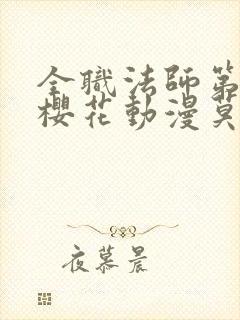 全職法師第
櫻花動漫莫
夜慕晨